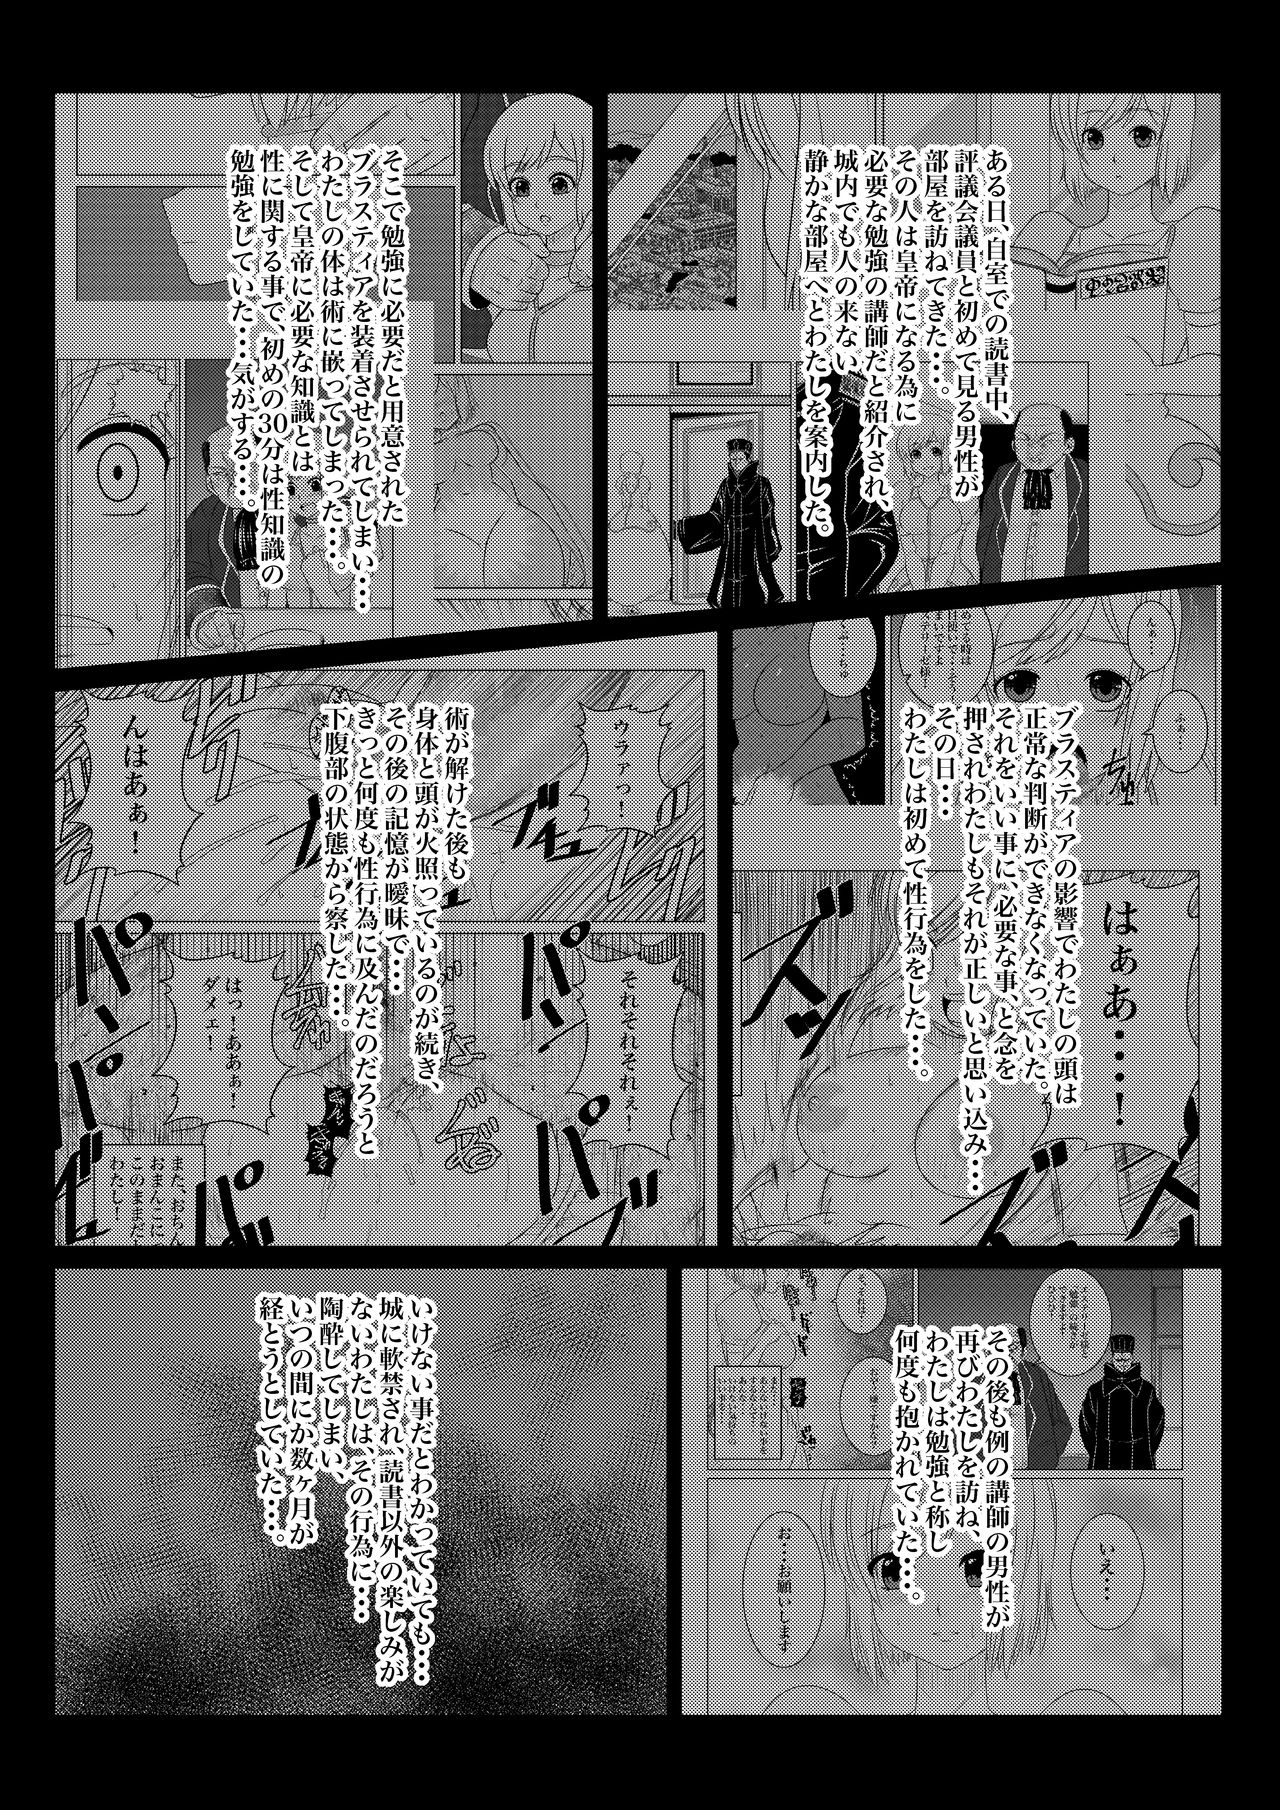 ある日、自室での読書中、
評議会議員と初めて見る男性が
部屋を訪ねてきた・・・。
その人は皇帝になる為に
必要な勉強の講師だと紹介され、
城内でも人の来ない
静かな部屋へとわたしを案内した。
そこで勉強に必要だと用意された
ブラスティアを装着させられてしまい・・・
わたしの体は術に嵌ってしまった・・・。
そして皇帝に必要な知識とは
性に関する事で、初めの30分は性知識の
勉強をしていた・・・気がする・・・。
んぁ・・・
ふぁ・・・
ブラスティアの影響でわたしの頭は
正常な判断ができなくなっていた。
それをいい事に、必要な事、と念を
押されわたしもそれが正しいと思い込み・・・
その日・・・
わたしは初めて性行為をした・・・。
はぁあ・・・！
術が解けた後も
身体と頭が火照っているのが続き、
その後の記憶が曖昧で・・・
きっと何度も性行為に及んだのだろうと
下腹部の状態から察した・・・。
ウラァっ！
んはあぁ！
それそれそれぇ！
はっ！ああぁ！
ダメェ！
また、おちん
おまんこに
このままだ
わたし！
その後も例の講師の男性が
再びわたしを訪ね、
わたしは勉強と称し
何度も抱かれていた・・・。
いぇ・・・
お・・お願いします
いけない事だとわかっていても・・・
城に軟禁され、読書以外の楽しみが
ないわたしは、その行為に・・・
陶酔してしまい、
いつの間にか数ヶ月が
経とうとしていた・・・。